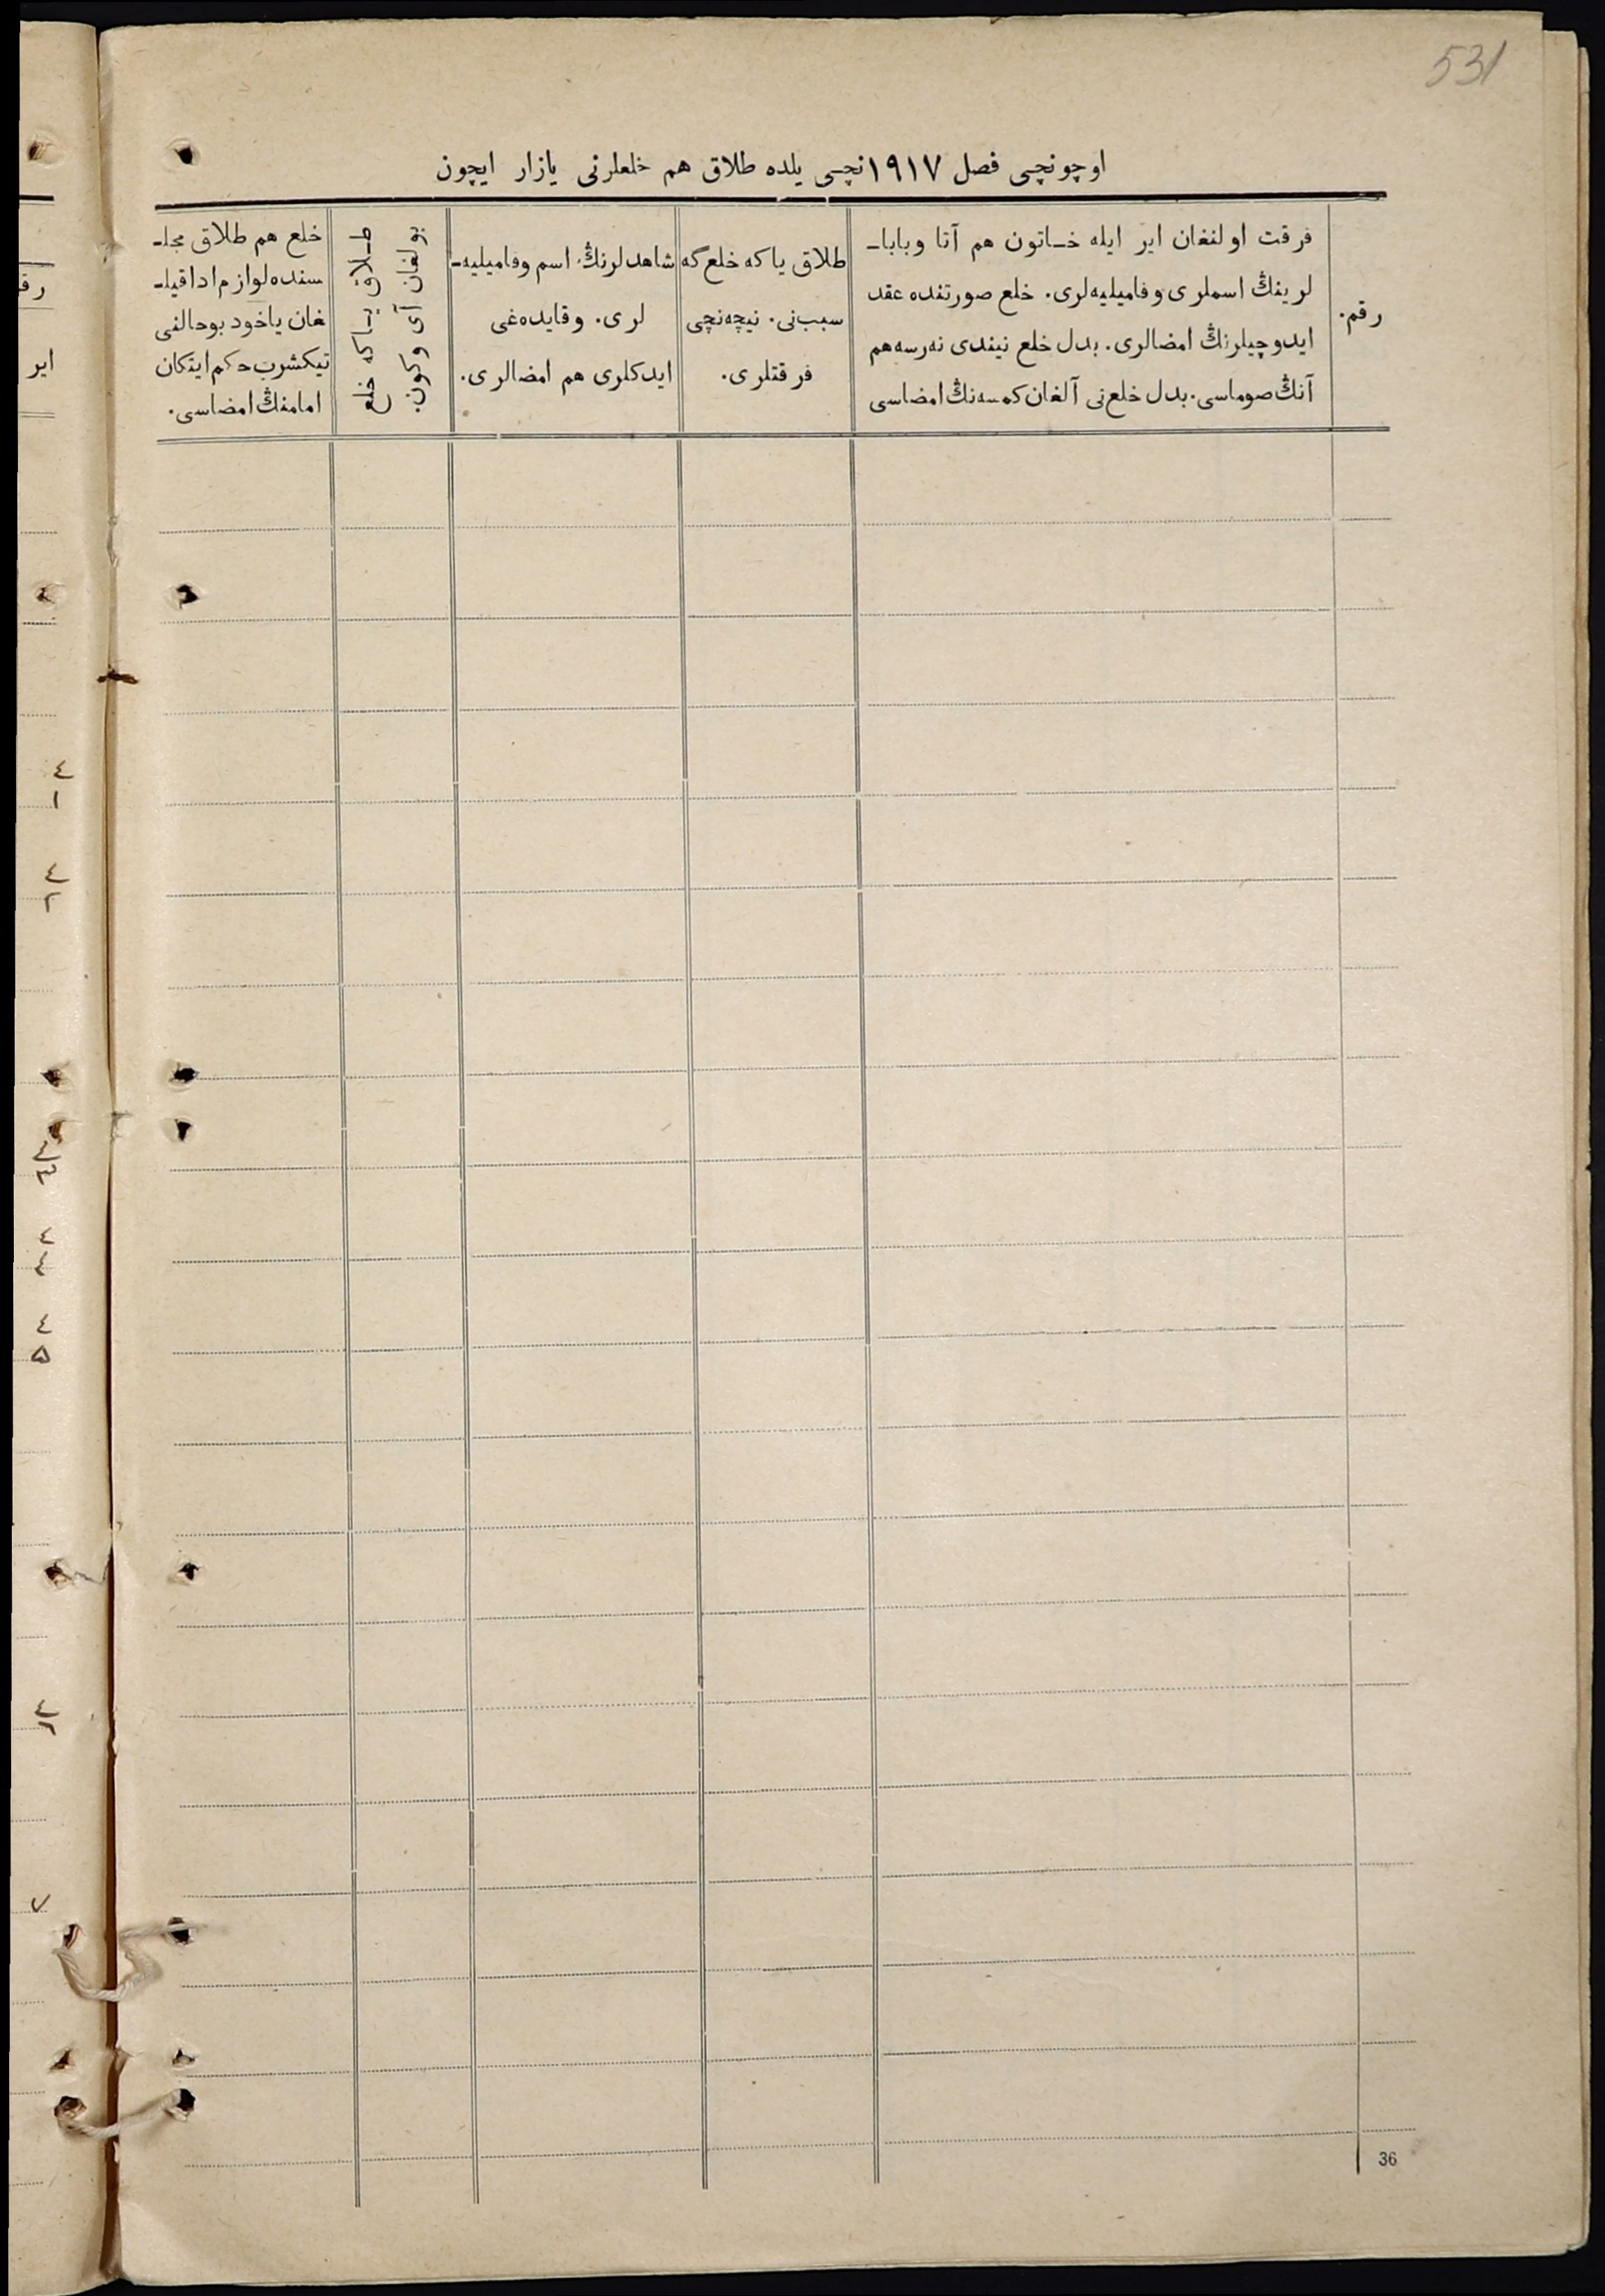 531
اوچونچی فصل ١٩١٧نچی یلده طلاق هم خلعلرنی یازار ایچون
رقم.
فرقت اولنغان ایر ایله خـاتون هم آتا وبابا-
لرینڭ اسملری وفامیلیه‌لری. خلع صورتنده عقد
ایدوچیلرنڭ امضالری. بدل خلع نیندی نه‌رسه هم
آنڭ صوماسی. بدل خلع‌نی آلغان کمسه‌نڭ امضاسی
طلاق یاکه خلع‌گه
سبب‌نی. نیچه‌نچی
فرقتلری.
شاهدلرنڭ اسم وفامیلیه-
لری. وقایده‌غی
ایدکلری هم امضالری.
طـلاق یـاکه خلع
بولغان آی وکون.
خلع هم طلاق مجلـ
سنده لوازم ادا قیلـ
غان یاخود بوحالنی
تیکشرب حکم ایتکان
امامنڭ امضاسی.
36
رق
ایر
٤
١
٤
٢
٤
٣
٤
٥
٧